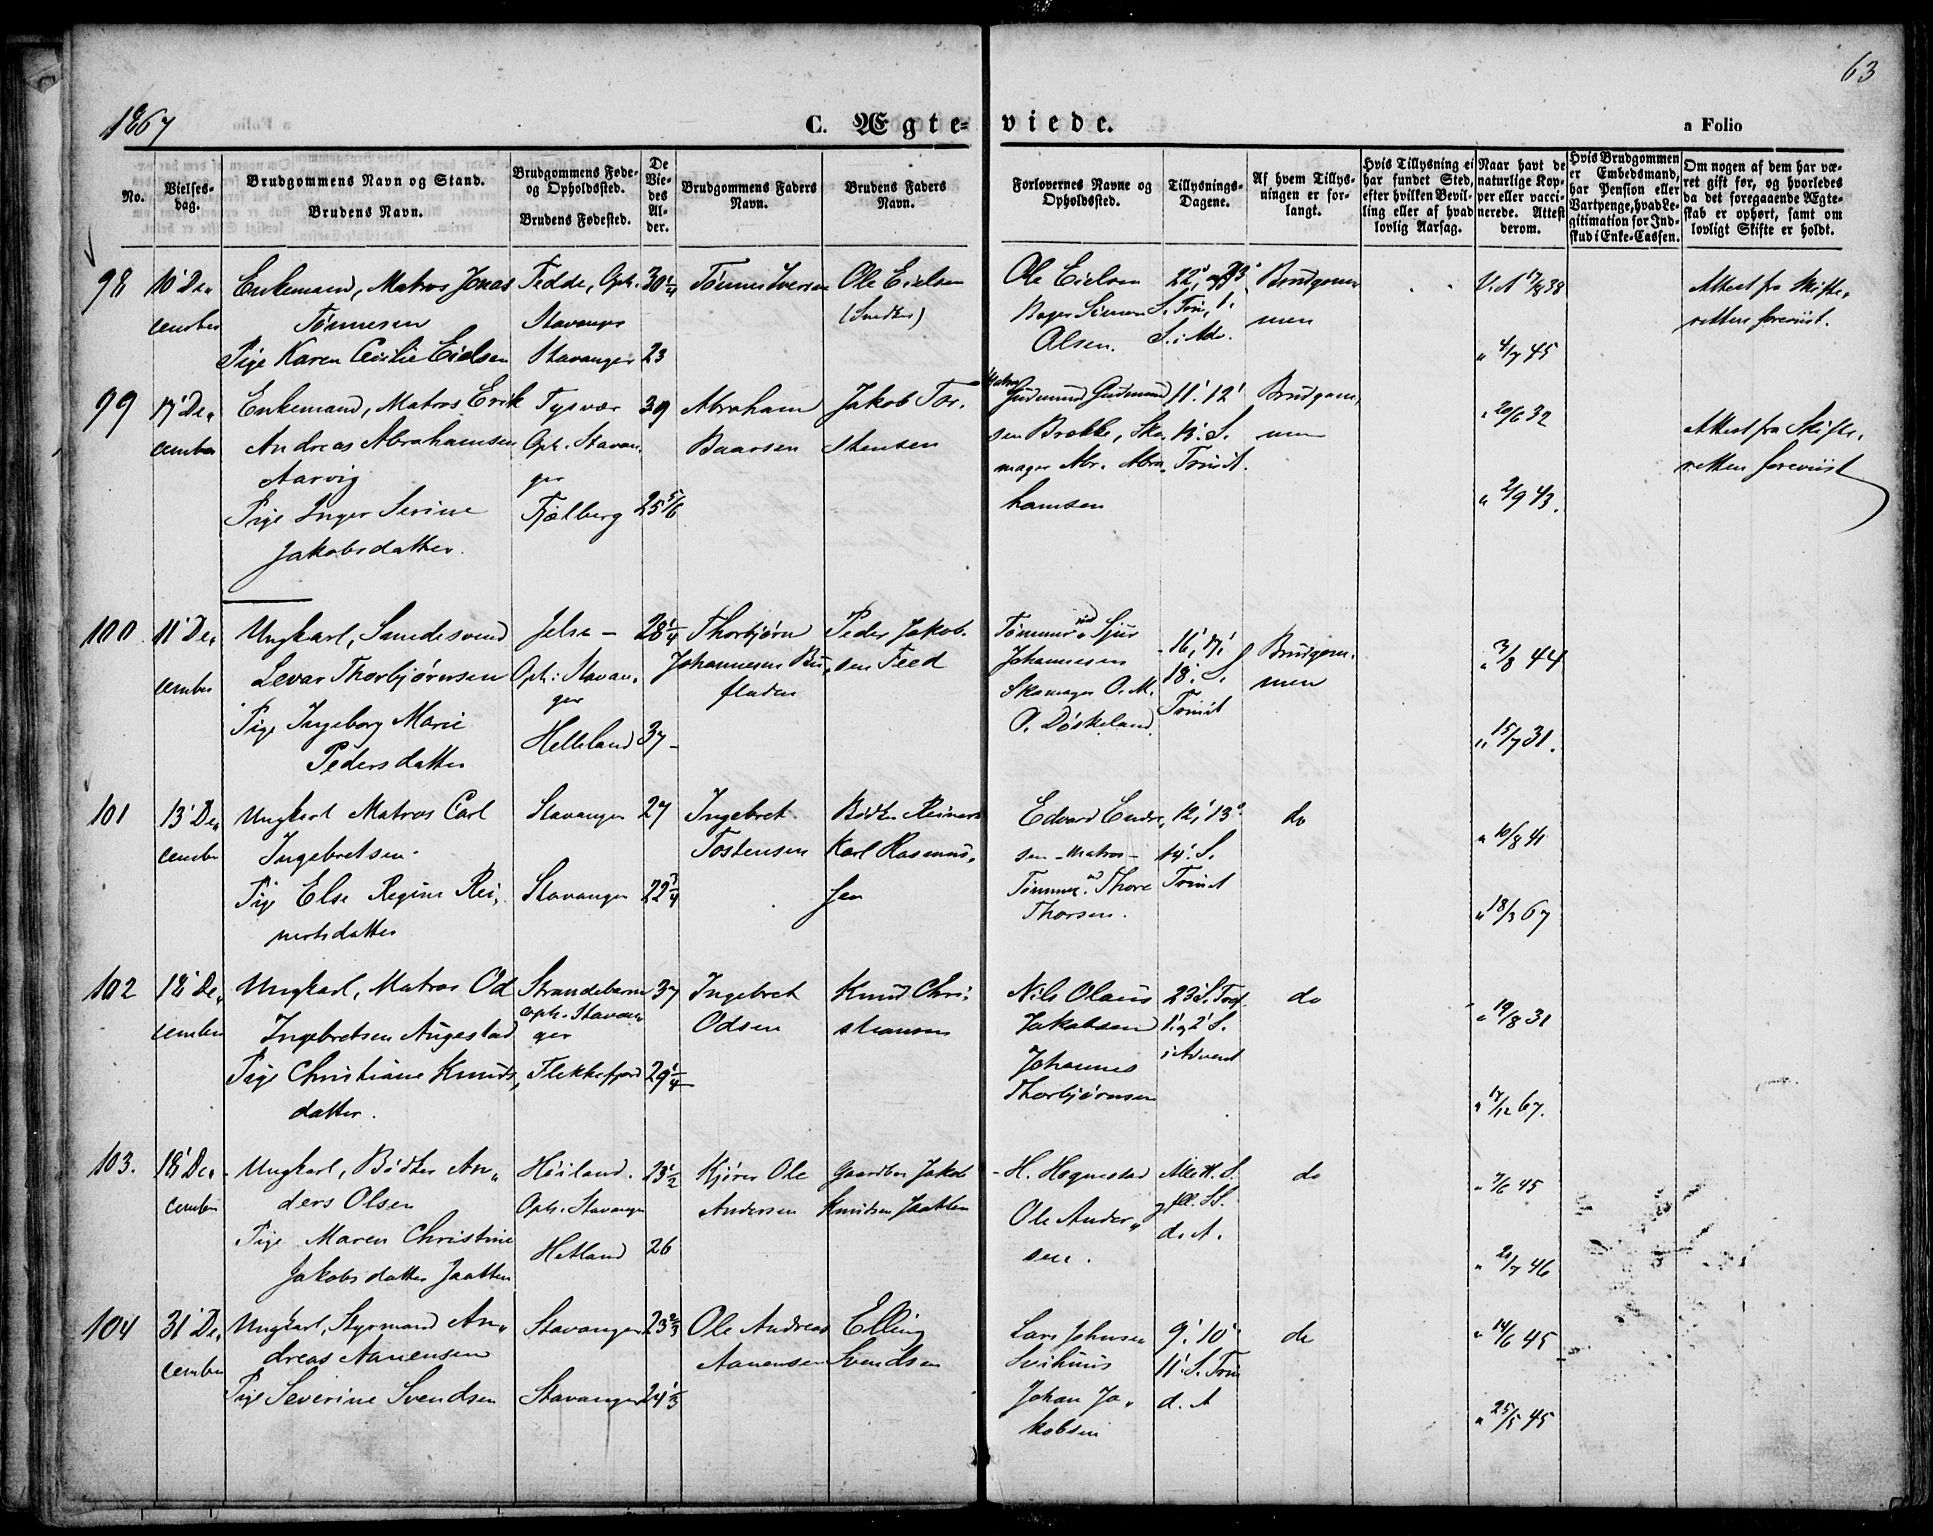 63
1867
C. Ægte-
viede.
a Folio
No.
Vielses-
dag.
Brudgommens Navn og Stand.
Brudens Navn.
Brudgommens Føde-
og Opholdssted.
Brudens Fødested.
De
Vie-
des
Al-
der.
Brudgommens Faders
Navn.
Brudens Faders
Navn.
Forlovernes Navne og
Opholdssted.
Tillysnings-
Dagene.
Af hvem Tillys-
ningen er for-
langt.
Hvis Tillysning ei
har fundet Sted,
efter hvilken Bevil-
ling eller af hvad
lovlig Aarsag.
Naar havt de
naturlige Kop-
per eller vacci-
nerede. Attest
derom.
Hvis Brudgommen
er Embedsmand,
har Pension eller
Vartpenge, hvad Le-
gitimation for Ind-
skud i Enke-Cassen.
Om nogen af dem har væ-
ret gift før, og hvorledes
da det foregaaende Ægte-
skab er ophørt, samt om
lovligt Skifte er holdt.
98
10' De,
cember
Enkemand, Matros Jonas
Tønnesen
Pige Karen Cecilie Eielsen
Fedde, Oph.
Stavanger
Stavanger
30 1/4
23
Tønnes Iversen
Ole Eielsen
Ole Eielsen
Olsen.
22', og 23'
S. Trin, 1.
S. i Adv.
Brudgom
men
V. A 17/8 38
" 4/7 45
Attest fra Skifte,
retten foreviist.
99
17' De,
cember
Enkemand, Matros Erik
Andreas Abrahamsen
Aarvig
Pige Inger Serine
Jakobsdatter.
Tysvær
Oph. Stavan,
ger
Fjelberg
39
25 5/6
Abraham
Baarsen
Jakob Tor,
stensen
Matros
Gudmund Gudmund
sen Brekke, Sko,
mager Abr. Abra,
hamsen
11'. 12'
13'. S.
Trinit.
Brudgom,
men
" 20/6 32
" 2/9 43.
Attest fra Skifte,
retten foreviist
100
11' De,
cember
Ungkarl, Smedesvend
Levar Thorbjørnsen
Pige Ingeborg Marie
Pedersdatter
Jelse -
Oph: Stavan,
ger
Helleland
28 1/4
37 -
Thorbjørn
Johannesen
Peder Jakob,
sen Feed
Tømmermd Sjur
Johannesen
Skomager O. M.
O. Døskeland.
16', 17',
18'. S.
Trinit
Brudgom,
men
" 3/8 44
" 15/7 31.
101
13' De,
cember
Ungkarl Matros Carl
Ingebretsen.
Pige Else Regine Rei,
nertsdatter
Stavanger
Stavanger
27
22 3/4
Ingebret
Tostensen
Bødker Reinert
Karl Rasmus,
sen
Edvard Endre,
sen - Matros -
Tømmermd Thore
Thorsen.
12', 13'
14'. S.
Trinit
do
" 10/8 41
" 18/3 67
102
18' De,
cember
Ungkarl, Matros Od
Ingebretsen Augestad
Pige Christiane Knuds,
datter.
Strandebarm
Oph. Stavan
ger
Flekkefjord
37
29 1/4
Ingebret
Odsen
Knud Chri,
stiansen
Nils Olaus
Jakobsen
Johannes
Thorbjørnsen
23' S. Trof
1' og 2' S.
i Advent
do
" 19/8 31
" 17/12 67.
103.
18' De,
cember
Ungkarl, Bødker An,
ders Olsen
Pige Maren Christine
Jakobsdatter Jaatten
Høiland.
Oph. Stavanger
Hetland
23 1/2
26
Kjører Ole
Andersen
Gaardbr Jakob
Knudsen Jaatten
H. Hognestad
Ole Ander,
sen.
Alle H. S.
d. A.
do
" 7/6 45
" 20/7 46
104
31' De,
cember
Ungkarl, Styrmand An,
dreas Aanensen
Pige Severine Svendsen
Stavanger
Stavanger
23 2/3
24 1/3
Ole Andreas
Aanensen
Elling
Svendsen
Lars Johnsen
Svihuus
Johan Ja,
kobsen
9'. 10'
11'. S. Trin
d. A
do
" 14/6 45
" 25/5 45